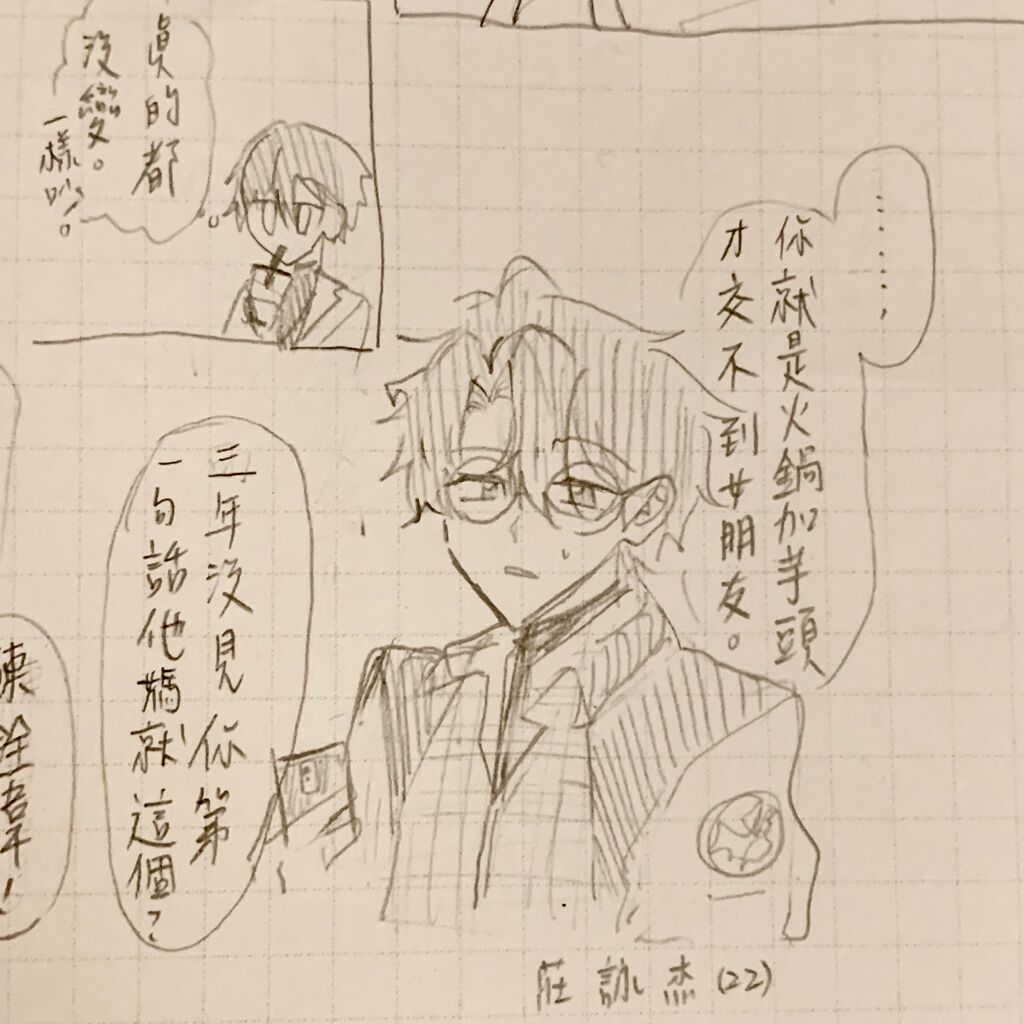 真的都
沒變。
一樣吵。
………,
你就是火鍋加芋頭
才交不到女朋友。
三年沒見你第
一句話他媽就這個?
莊詠杰(22)